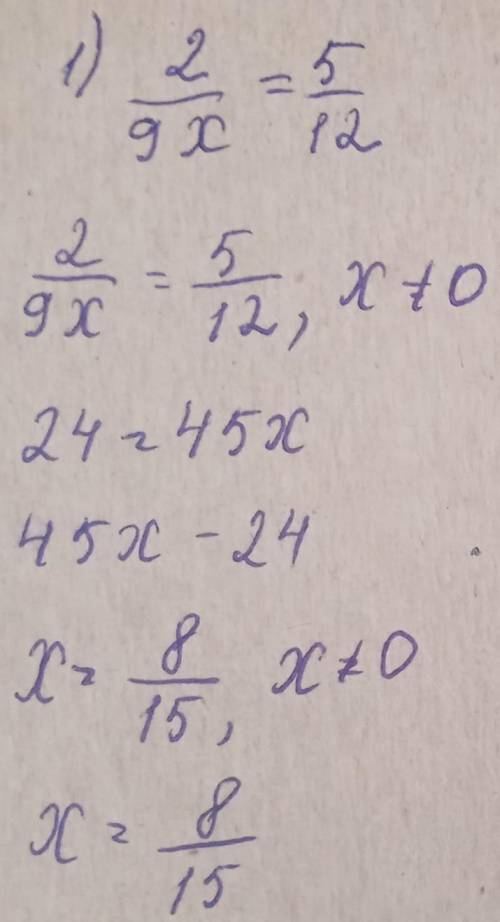 1) 2/9x = 5/12
2/9x = 5/12, x ≠ 0
24 = 45x
45x - 24
x = 8/15, x ≠ 0
x = 8/15